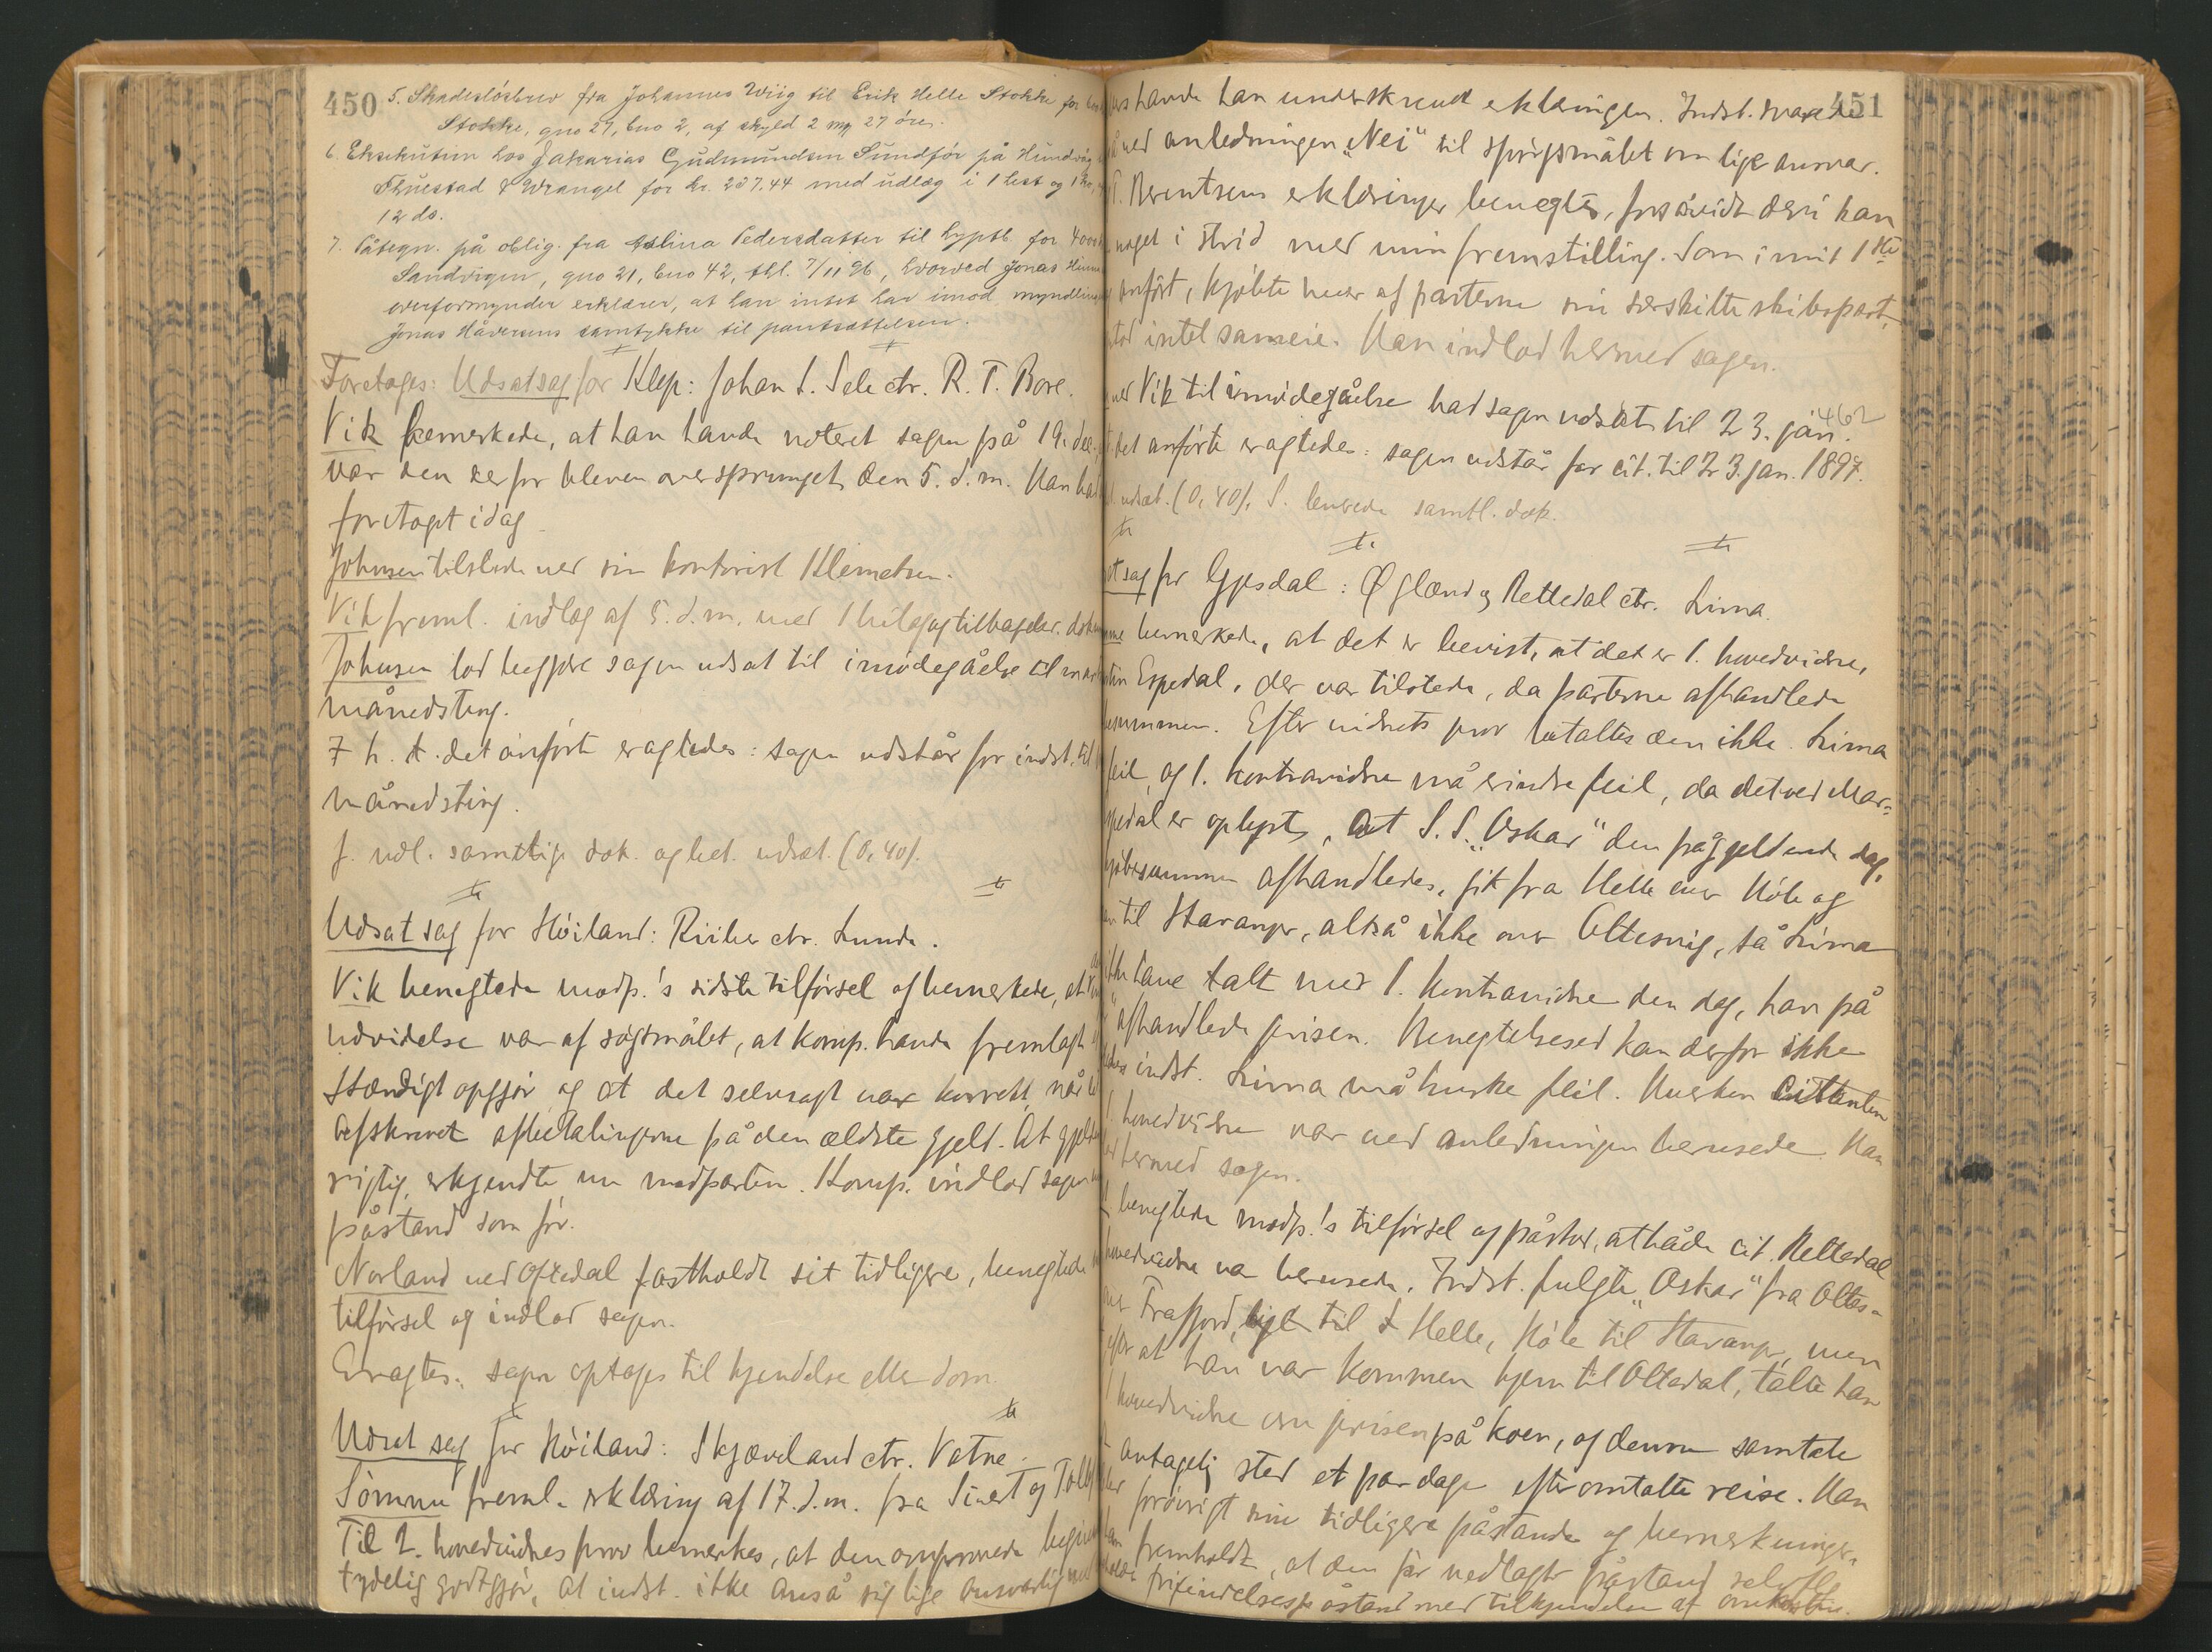 450
5. Skadesløsbrev fra Johannes Wiig til Erik Helle Stokke for
Stokke, gno 27, bno 2, af skyld 2 mk 27 øre.
6. Eksekution hos Zakarias Gudmundsen Sundför på Hundvåg
Thuestad & Wrangel for kr. 237.44 med udlæg i 1 hest og 1 ko,
12 ds.
7. Påtegn. på oblig. fra Pedersdatter til hyptb. for 4000
Sandvigen, gno 21, bno 42, thl. 7/11 96, hvorved Jonas
overformynder erklærer, at han intet har imod myndling
Jonas Håversens samtykke til pantsættelsen.
Foretages: Udsat sag for Klep: Johan S. Sele ctr. R. T. Bore.
Vik bemerkede, at han havde noteret sagen på 19. dec.
var den derfor bleven oversprunget den 5. d. m. Han bad
foretaget idag
Johnsen tilstede ved sin kontorist Klemetsen.
Vik freml. indlæg af 5. d. m. med 1 bilag og tilbagelev. dok
Johnsen lod begjære sagen udsat til imødegåelse til
månedsting.
I h. t. det anførte eragtedes: sagen udstår for indst. til
månedsting.
J. udl. samtlige dok. og bet. udsæt. (0,40).
Udsat sag for Höiland: Riiber ctr. Lunde.
Vik benegtede modp.'s sidste tilførsel og bemerkede, at
udvidelse var af søgsmålet, at komp. havde fremlagt
stændigt opgjør og at det selvsagt var korrekt, når
afskrevet afbetalingerne på den ældste gjeld. At gjelden
rigtig, erkjendte nu modparten. Komp. indlod sagen
påstand som før.
Norland ved Oftedal fastholdt sit tidligere, benegtede
tilførsel og indlod sagen.
Eragtes: sagen optages til kjendelse eller dom.
Udsat sag for Höiland: Skjæveland ctr. Vatne.
Sömme freml. erklæring af 17. d. m. fra Sivert og
Til 2. hovedvidnes prov bemerkes, at den omprovede
tydelig godtgjør, at indst. ikke anså sig lige ansvarlig med
451
havde han underskrevet erklæringen. Indst. svarede
ved anledningen „Nei" til spørgsmålet om lige ansvar.
T. Berentsens erklæringer benegtes, forsåvidt deri kan
noget i strid med min fremstilling. Som i mit 1ste
anført, kjøbte hver af parterne sin særskilte skibspart,
intet sameie. Man indlod hermed sagen.
ved Vik til imødegåelse bad sagen udsat til 23. jan.
462
det anførte eragtedes: sagen udstår for cit. til 23. jan. 1897.
udsæt. (0,40). S. leverede samtl. dok.
sag for Gjesdal: Øglænd og Rettedal ctr. Lima.
bemerkede, at det er bevist, at det er 1. hovedvidne,
Espedal, der var tilstede, da parterne afhandlede
summen. Efter vidnets prov betaltes den ikke. Lima
feil, og 1. kontravidne må erindre feil, da det ved Mar-
pedal er oplyst, at S.S. „Oskar" den pågjeldende dag,
kjøbesummen afhandledes, gik fra Helle over Høle og
til Stavanger, altså ikke over Oltesvig, så Lima
ikke have talt med 1. kontravidne den dag, han på
afhandlede prisen. Benegtelsesed kan derfor ikke
indst. Lima må huske feil. Hverken Cittanten
hovedvidne var ved anledningen berusede. Man
hermed sagen.
benegtede modp.'s tilførsel og påstod, at både cit. Rettedal
hovedvidne va berusede. Indst. fulgte „Oskar" fra Oltes-
over Frafjord, til Helle, Høle til Stavanger, men
efter at han var kommen hjem til Oltedal, talte han
hovedvidne om prisen på koen, og denne samtale
antagelig sted et par dage efter omtalte reise. Man
forøvrigt sine tidligere påstande og bemerkninger.
fremholdt, at den før nedlagte påstand
frifindelsespåstand med tilkjendelse af omkostn.